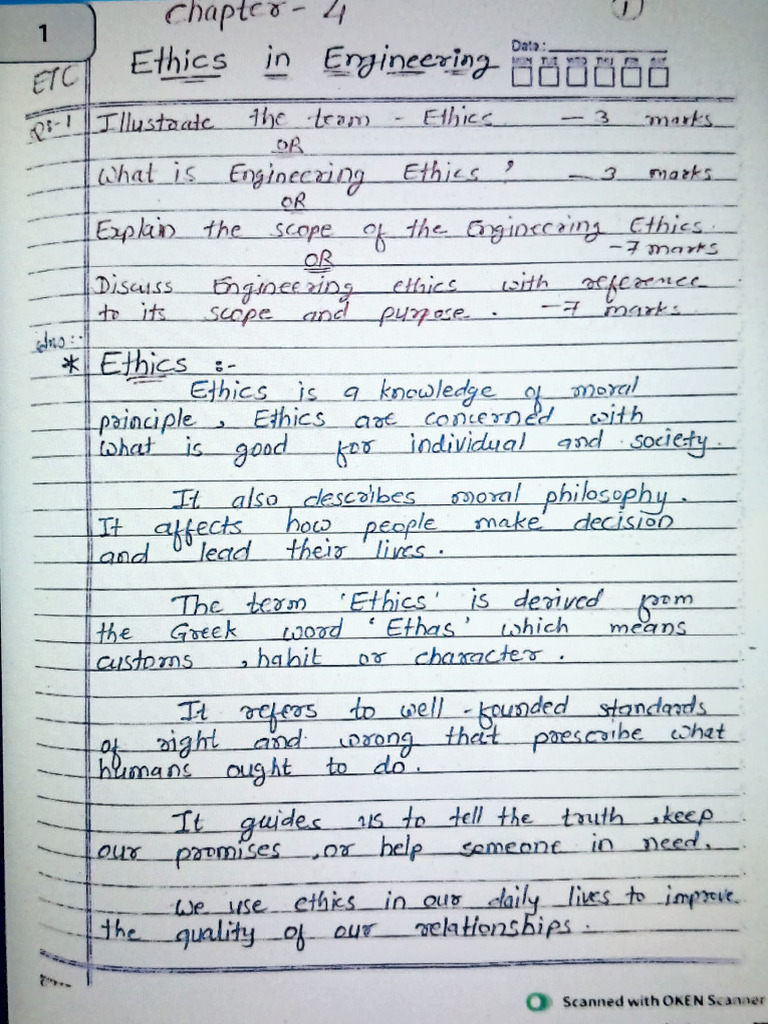 1
Chapter - 4
1
Ethics in Engineering
Date:
MON TUE WED THU FRI SAT
ETC
Q:-1
Illustrate the term - Ethics - 3 marks
OR
What is Engineering Ethics ? - 3 marks
OR
Explain the scope of the Engineering Ethics.
-7 marks
OR
Discuss Engineering ethics with reference
to its scope and purpose. -7 marks
Ans:-
* Ethics :-
Ethics is a knowledge of moral
principle, Ethics are concerned with
what is good for individual and society.
It also describes moral philosophy.
It affects how people make decision
and lead their lives.
The term 'Ethics' is derived from
the Greek word 'Ethas' which means
customs, habit or character.
It refers to well-founded standards
of right and wrong that prescribe what
humans ought to do.
It guides us to tell the truth, keep
our promises, or help someone in need.
We use ethics in our daily lives to improve
the quality of our relationships.
Scanned with OKEN Scanner